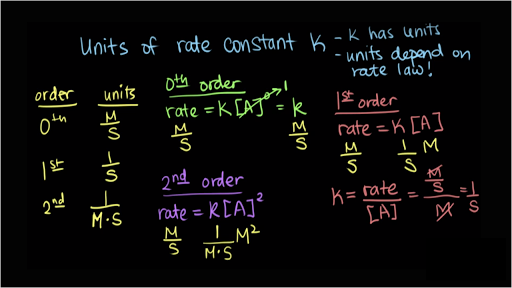 Units of rate constant K
- K has units
- units depend on
rate law!
order units
0th M/S
1st 1/S
2nd 1/M·S
0th order
rate = K[A]⁰ → 1 = k
M/S M/S
2nd order
rate = K[A]²
M/S 1/M·S M²
1st order
rate = K[A]
M/S 1/S M
K = rate/[A] = M/S/M = 1/S